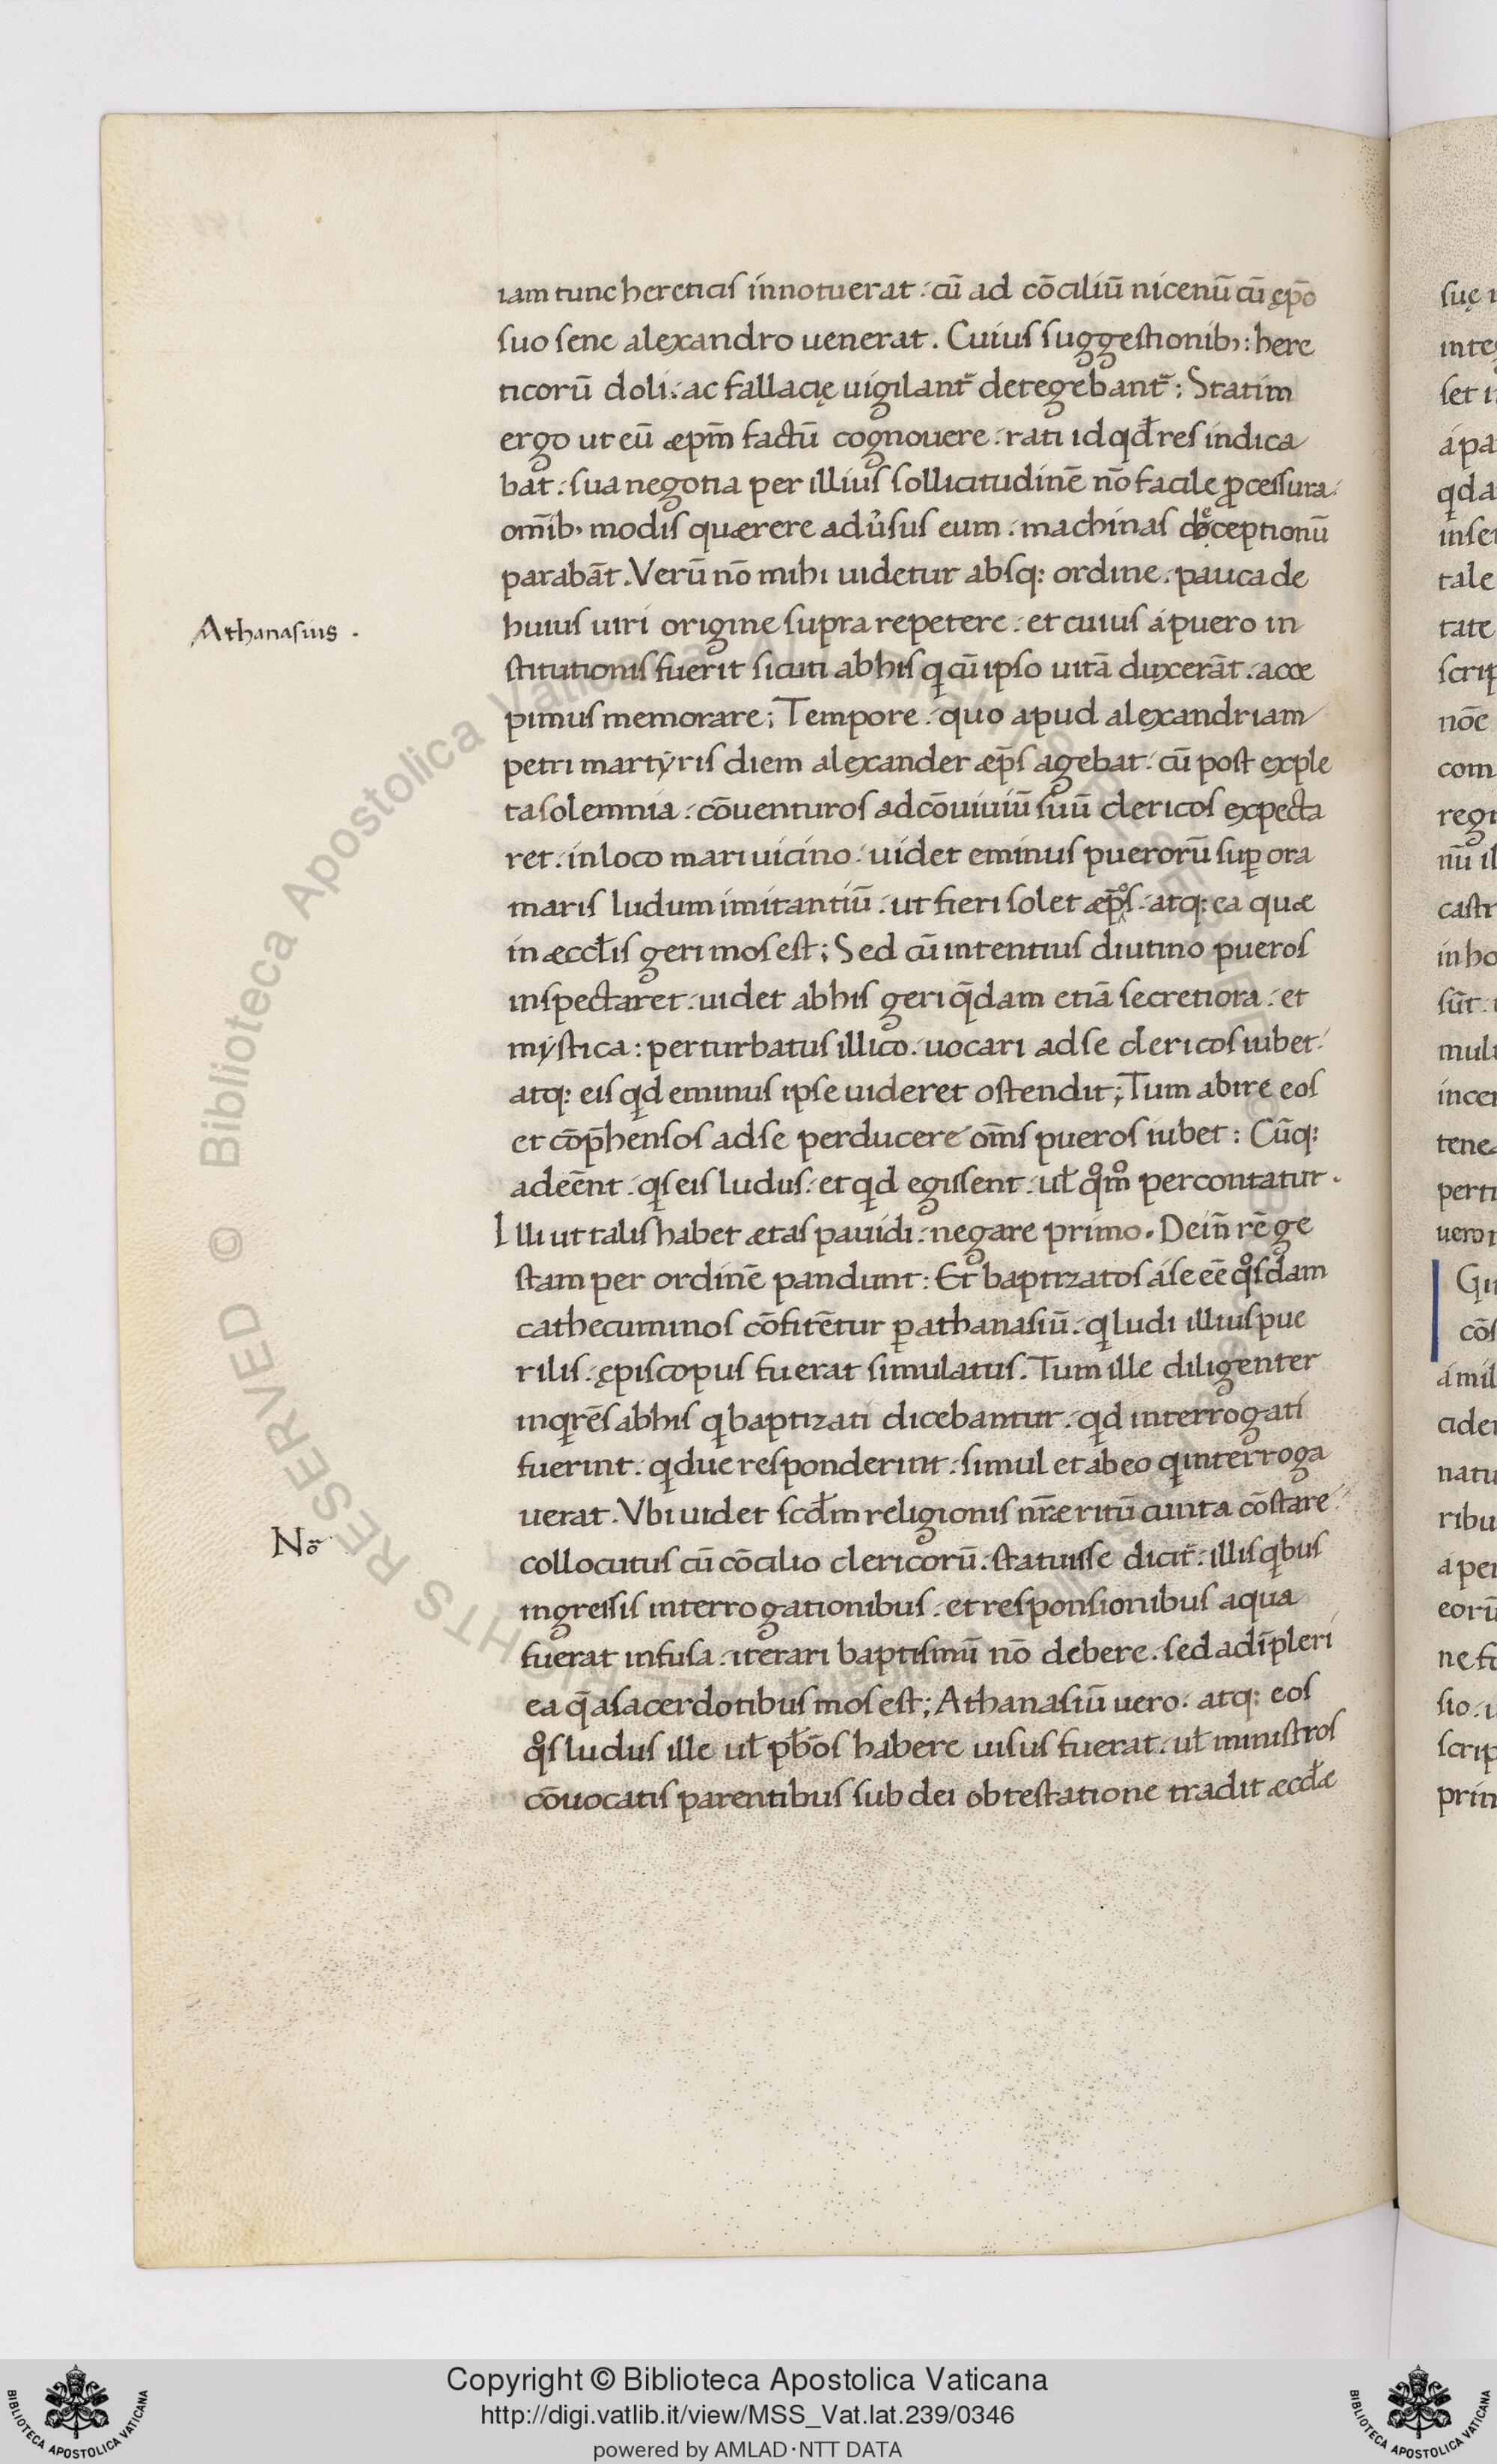 iam tunc hereticis innotuerat. cū ad cōciliū nicenū cū ęp̄o
suo sene alexandro uenerat. Cuius suggestionib;: here
ticorū doli. ac fallacię uigilant̄ detegebant̄; Statim
ergo ut eū æpm̄ factū cognouere. rati id qđ res indica
bat. sua negotia per illius sollicitudinē nō facilę ꝓcessura.
om̄ib; modis quærere adu̓sus eum. machinas
parabāt. Verū nō mihi uidetur absq: ordine. pauca de
Athanasius.
huius uiri origine supra repetere. et cuius á puero in
stitutionis fuerit sicuti ab his q̇ cū ipso uitā duxerāt. acce
pimus memorare; Tempore. quo apud alexandriam
petri martẏris diem alexander æp̄s agebat. cū post exple
ta solemnia. cōuenturos ad cōuiuiū suū clericos expecta
ret. in loco mari uicino. uidet eminus puerorū suꝑ ora
maris ludum imitantiū. ut fieri solet æp̄oſ. atq: ea quæ
in æccłis geri mos est; Sed cū intentius diutino pueros
inspectaret. uidet ab his geri q̄dam etiā secretiora. et
mẏstica: perturbatus illico. uocari ad se clericos iubet.
atq: eis qd eminus ipse uideret ostendit; Tum abire eos
et cōp̄hensos ad se perducere om̄s pueros iubet: Cūq:
adeēnt. qs eis ludus. et qd egissent. uł qͦmͦ percontatur.
Illi ut talis habet ætas pauidi. negare primo. Dein̄ rē ge
stam per ordinē pandunt: Et baptizatos á se eē qͦsdam
cathecuminos cōfitētur ꝑ athanasiū. q ludi illius pue
rilis. ępiscopus fuerat simulatus. Tum ille diligenter
inqrēs ab his q baptizati dicebantur. qd interrogati
fuerint. qdue responderint. simul et ab eo q interroga
uerat. Vbi uidet scđm religionis nr̄æ ritū cunta cōstare.
Nō
collocutus cū cōcilio clericorū. statuisse dicit̄. illis qbus
ingressis interrogationibus. et responsionibus aqua
fuerat infusa. iterari baptismū nō debere. sed adīpleri
ea q̄ a sacerdotibus mos est; Athanasiū uero. atq: eos
qͦs ludus ille uł pb̄os habere uisus fuerat. uł ministros
cōuocatis parentibus sub dei obtestatione tradit æccłæ
Copyright © Biblioteca Apostolica Vaticana
http://digi.vatlib.it/view/MSS_Vat.lat.239/0346
powered by AMLAD·NTT DATA